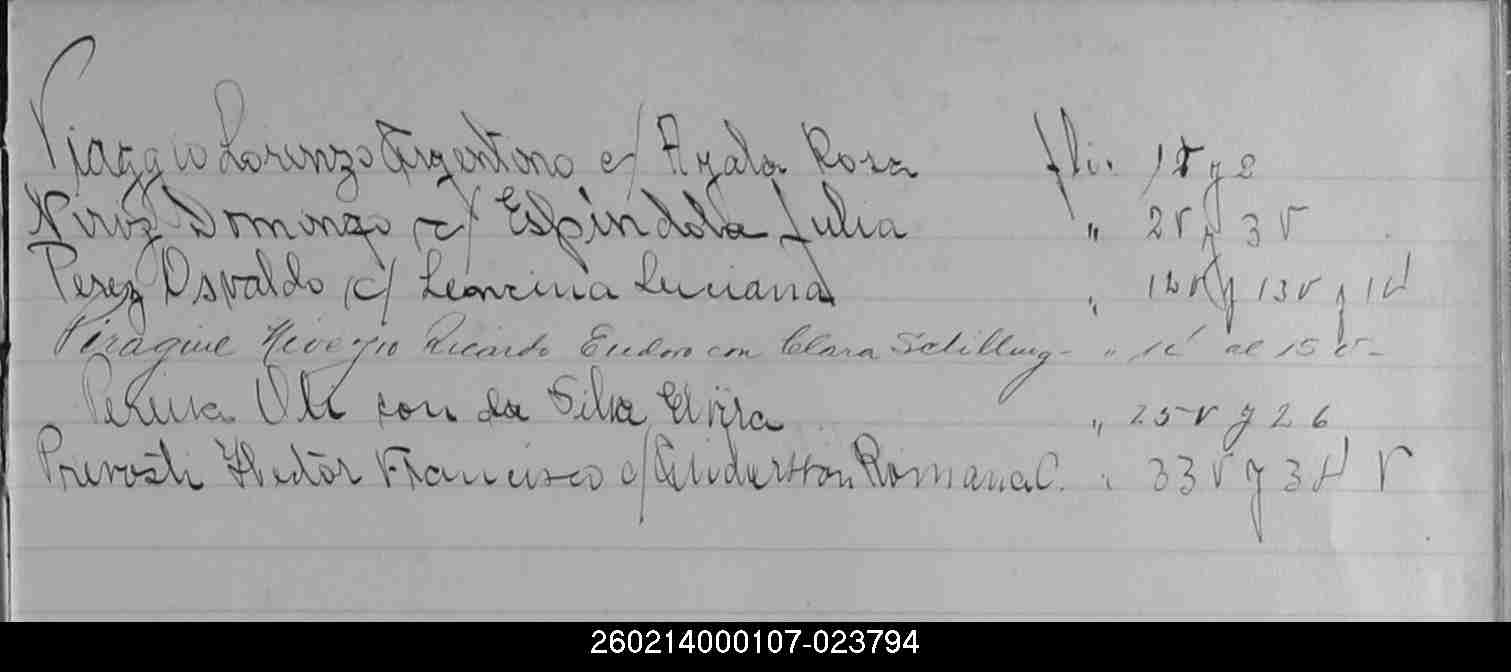 Piaggio Lorenzo Argentino c/ Ayala Rosa fli. 1v y 2
Niriz Domingo c/ Espindola Julia " 2v y 3v
Perez Osvaldo c/ Luciana " 12v y 13v y 14
Piragine Niveyro Ricardo Eudoro con Clara Schilling - " 14 al 15 v -
Pereira Oli con da Silva Elvira " 25v y 26
Prevosti Hector Francisco c/ Romana C. " 33v y 34 v
260214000107-023794